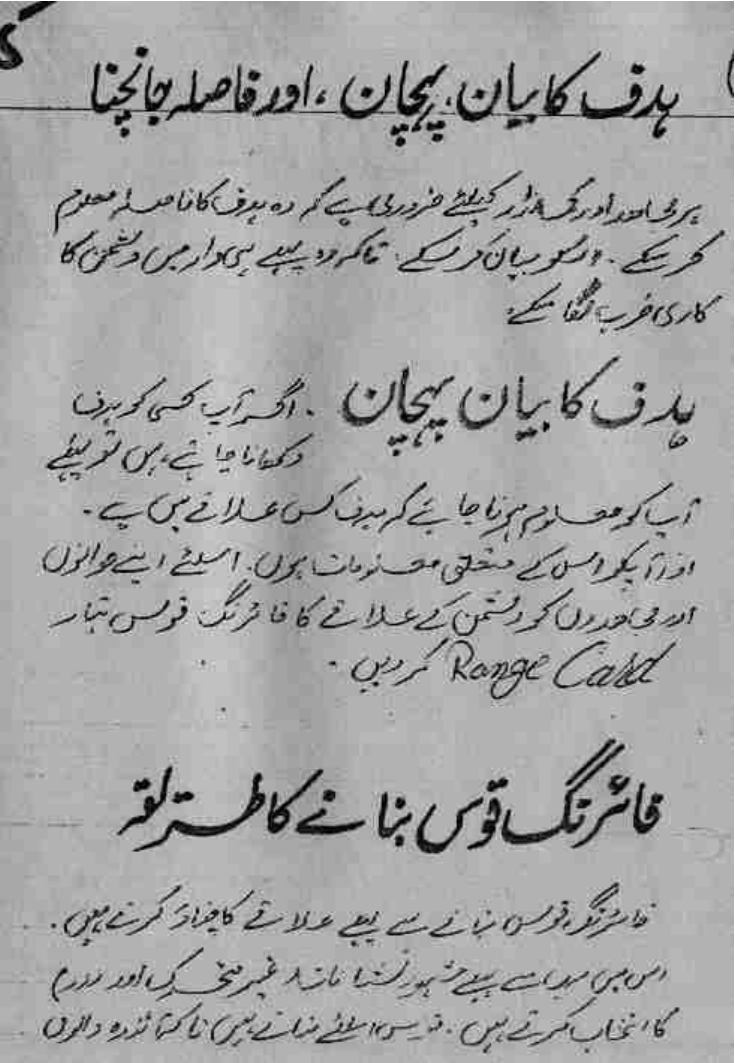 ہدف کا بیان، پہچان، اور فاصلہ جانچنا
ہر مجاہد اور کمانڈر کیلئے ضروری ہے کہ وہ ہدف کا فاصلہ معلوم
کر سکے۔ اسکو بیان کر سکے۔ تاکہ وہ پہلے ہی وار میں دشمن کا
کاری ضرب لگا سکے۔
ہدف کا بیان پہچان۔ اگر آپ کسی کو ہدف
دکھانا چاہتے ہیں تو پہلے
آپ کو معلوم ہونا چاہئے کہ ہدف کس علاقے میں ہے۔
اور آپکو اس کے متعلق معلومات ہوں۔ اسلئے اپنے جوانوں
اور مجاہدوں کو دشمن کے علاقے کا فائرنگ قوس تیار
Range Card کر دیں۔
فائرنگ قوس بنانے کا طریقہ
فائرنگ قوس بنانے سے پہلے علاقے کا جائزہ کرتے ہیں۔
اس میں سب سے پہلے مشہور نشانات غیر متحرک اور
کا انتخاب کرتے ہیں۔ اسلئے بناتے ہیں تاکہ